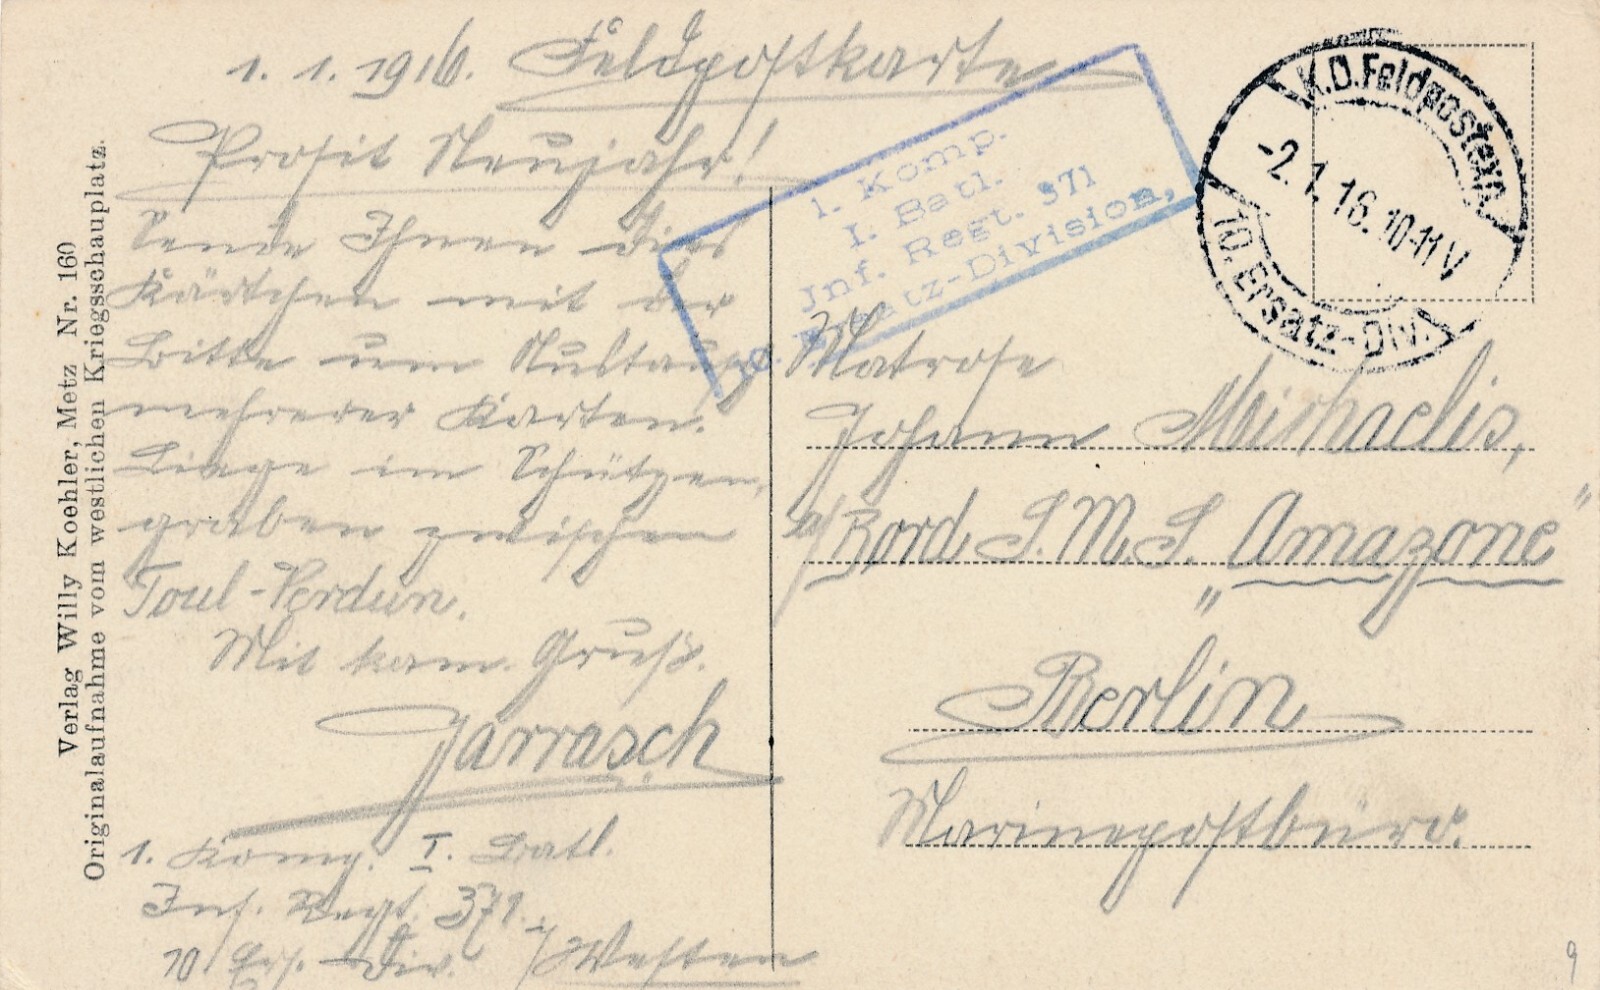 1. 1. 1916. Feldpostkarte
Prosit Neujahr!
Sende Ihnen dies
Kärtchen mit der
Bitte um Austausch
mehrerer Karten.
Liege im Schützen,
graben zwischen
Toul-Verdun.
Mit kam. Gruß.
Jarrasch
1. Komp. I. Batl.
Inf. Regt. 371.
10 Ers. Div. i/Westen
Verlag Willy Koehler, Metz Nr. 160
Originalaufnahme vom westlichen Kriegsschauplatz.
1. Komp.
I. Batl.
Jnf. Regt. 371
10. Ersatz-Division,
K.D.Feldpostexp.
-2.1.16.10-11V
10. Ersatz-Div.
Matrose
Johann Michaelis,
a/Bord S.M.S. „Amazone"
Berlin
Marinepostbüro.
9